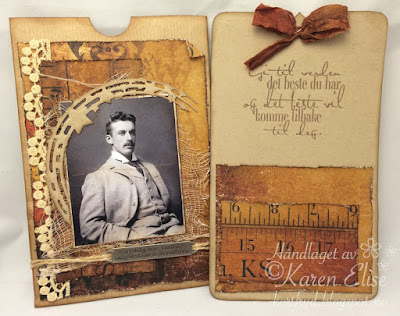 Gi til verden
det beste du har
og det beste vil
komme tilbake
til deg.
6 7 8 9
15 16 17
KS
Håndlaget av
©Karen Elise